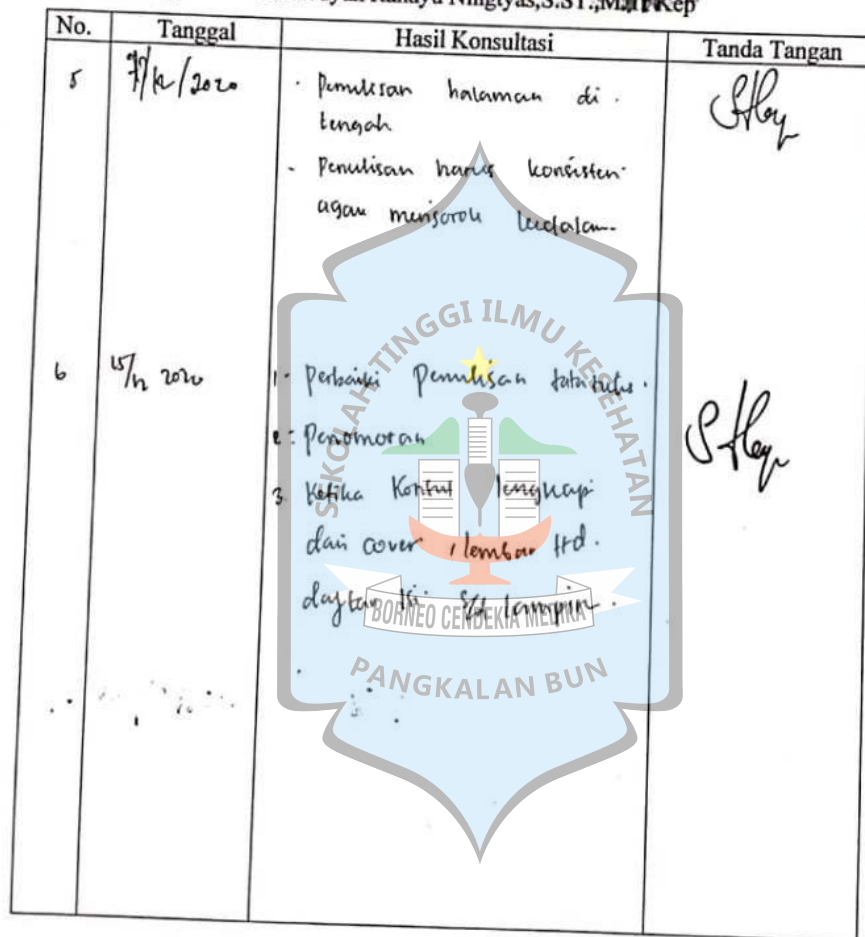 Rahayu Ningtyas,S.ST.,M.Tr.Kep
No. Tanggal Hasil Konsultasi Tanda Tangan
5 /12/2020 - Penulisan halaman di
tengah
- Penulisan harus konsisten
agau menjorok kedalam
6 15/12 2020 1. Perbaiki Penulisan tata tulis.
2. Penomoran
3. Ketika Konsul lengkapi
dari cover, lembar ttd.
daftar isi s/d lampiran.
SEKOLAH TINGGI ILMU KESEHATAN
BORNEO CENDEKIA MEDIKA
PANGKALAN BUN